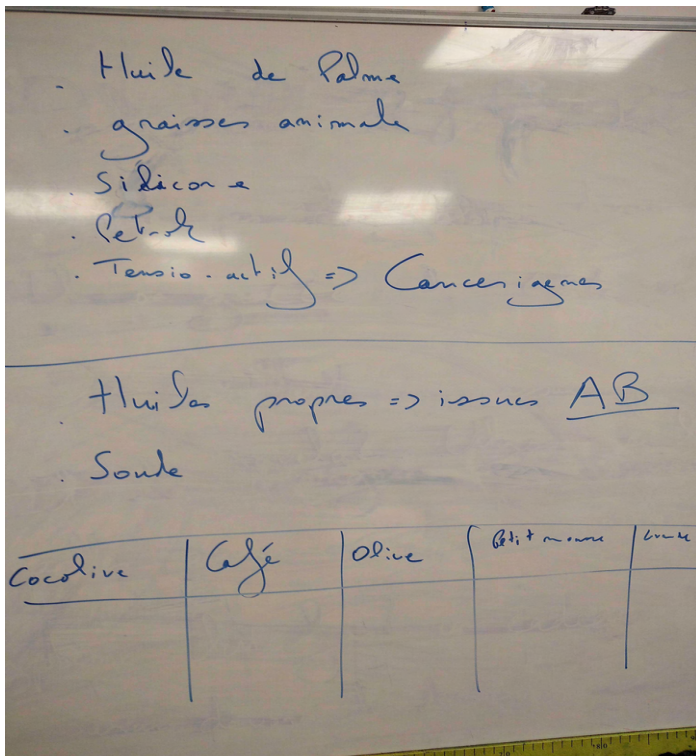 . Huile de Palme
. graisses animale
. Silicone
. Petrole
. Tensio-actif => Cancerigenes
. Huiles propres => issues AB
. Soude
Cocolive Café Olive Petit